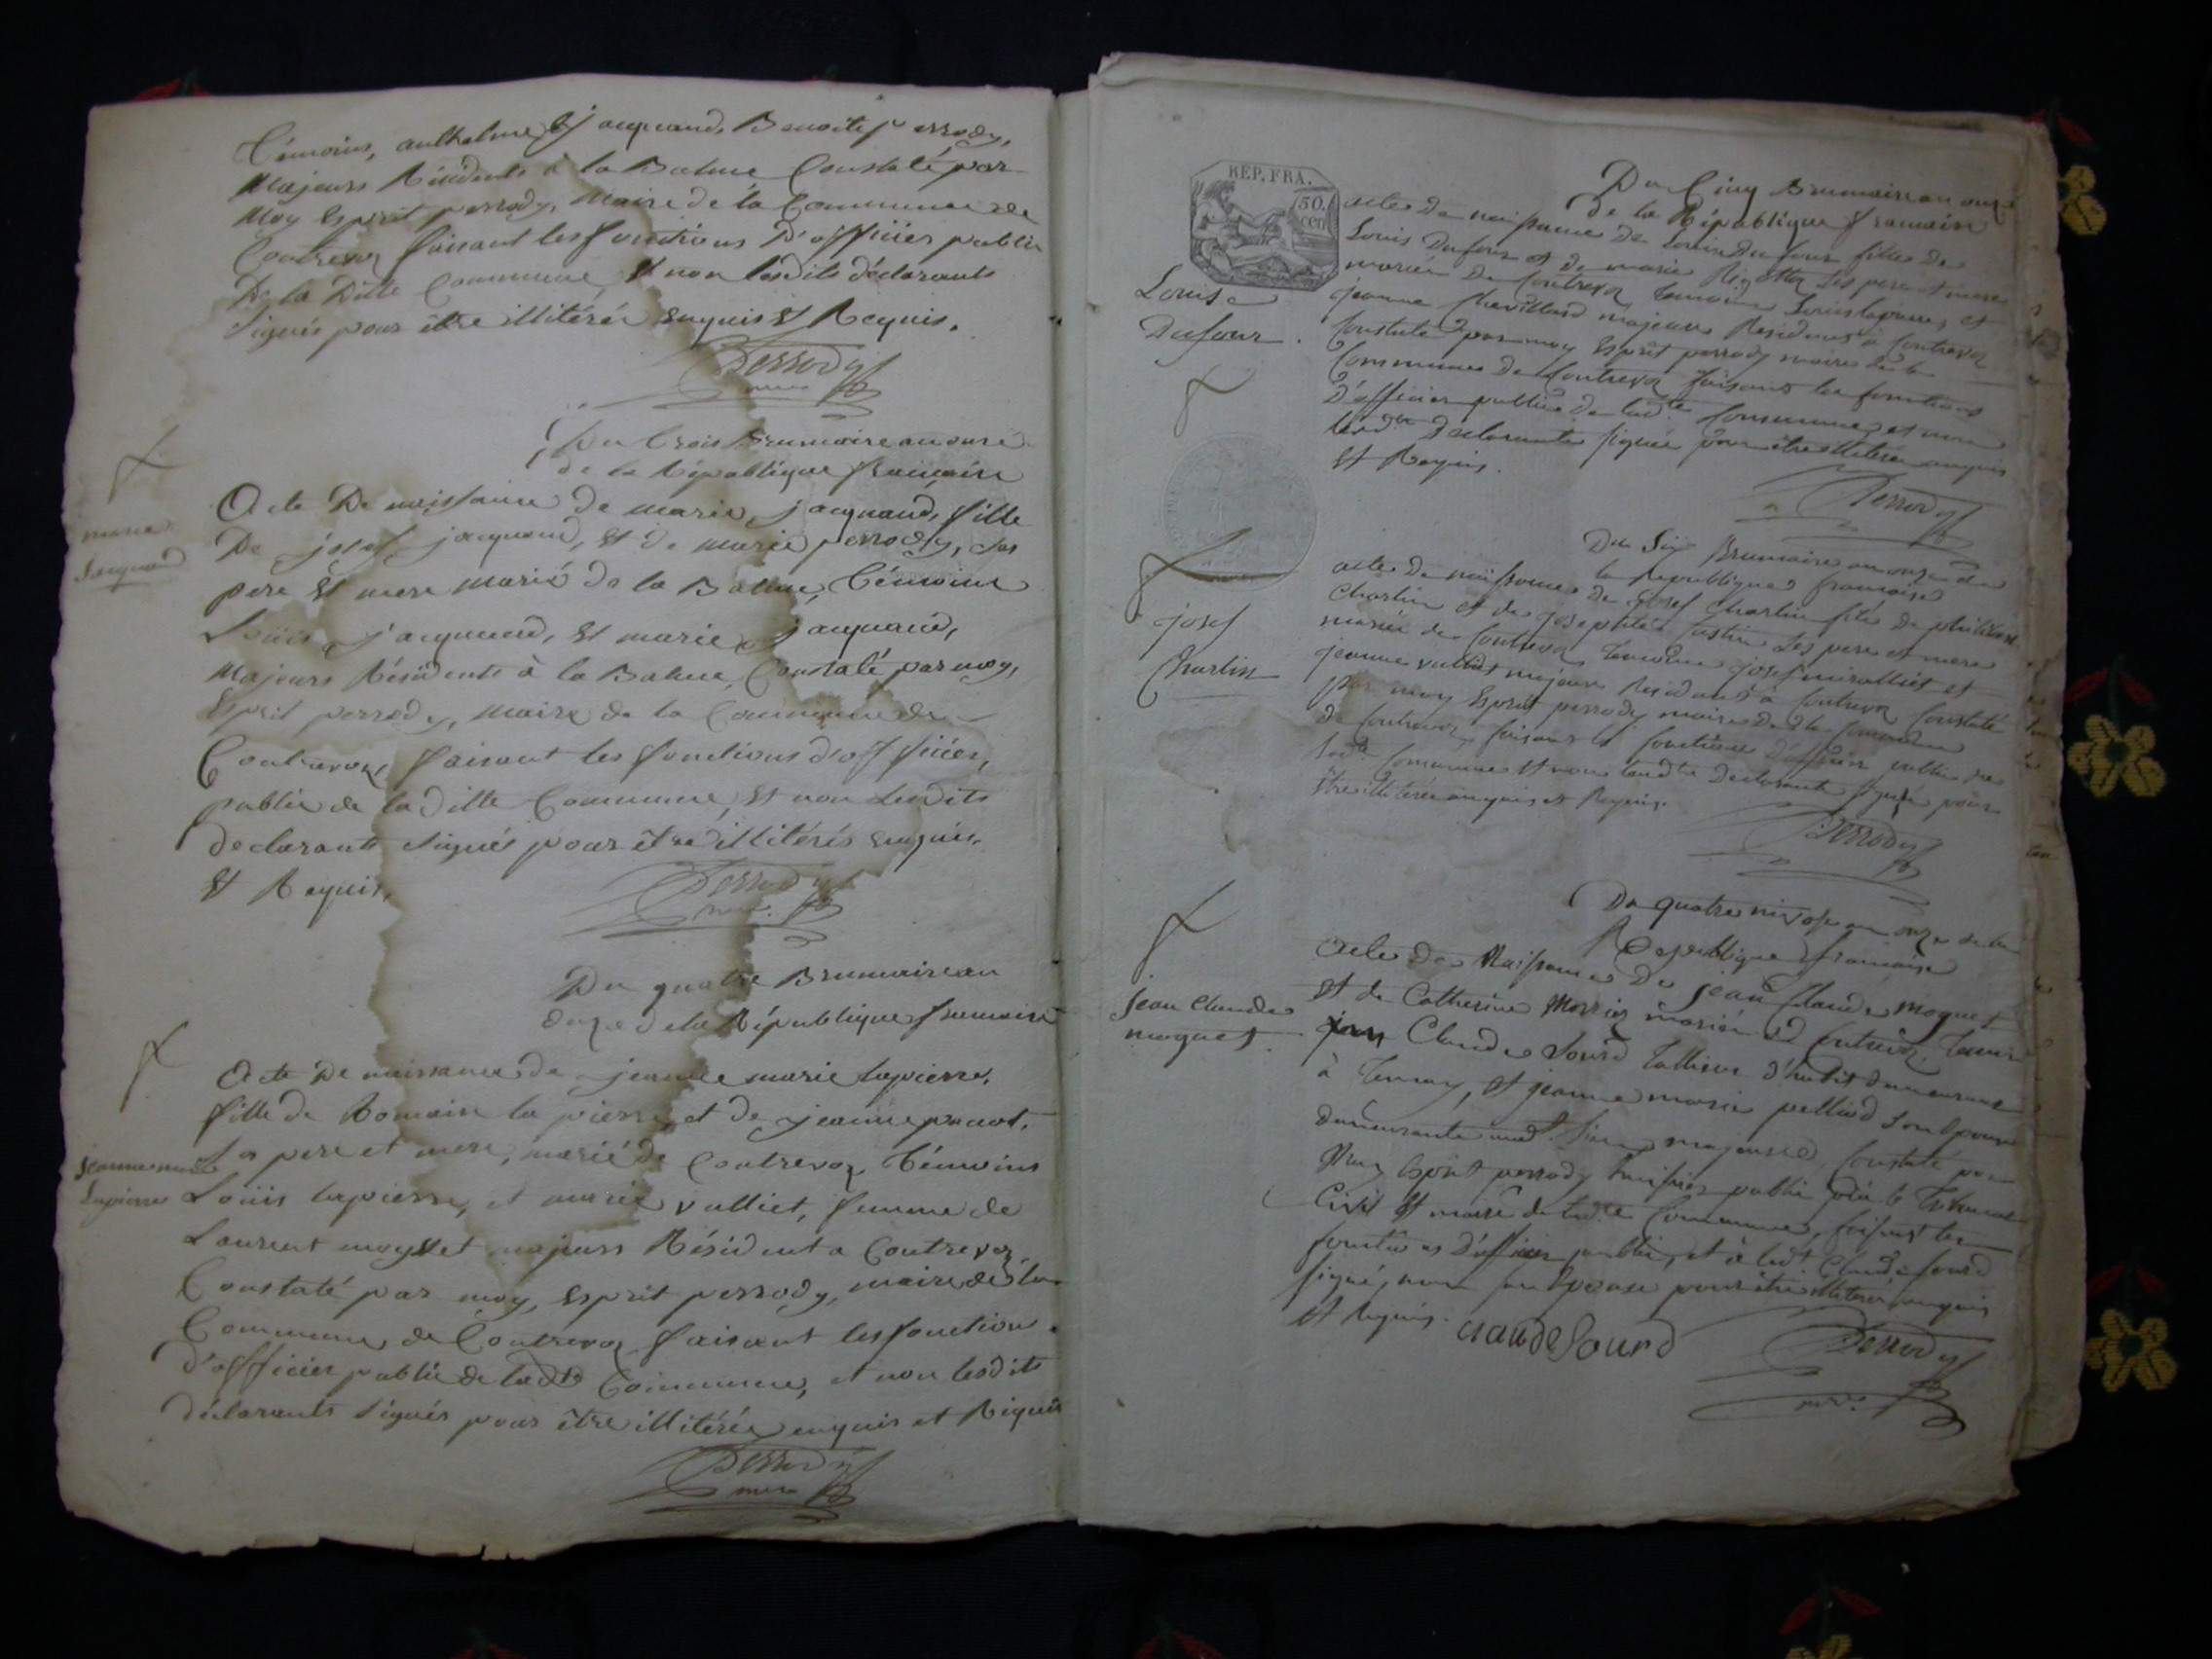 Témoins, anthelme jacquand, Benoite perrody,
Majeurs Résidents à la Balme Constaté par
Moy Esprit perrody, Maire de la Commune de
Contrevoz faisant les fonctions D'officier public
De la Ditte Commune, Et non lesdits déclarants
Signés pour être illitérés Enquis Et Requis.
Perrody
maire
Du trois Brumaire an onze
de la République française
Acte De naissance de marie, jacquand, fille
De josef jacquand, Et de marie perrody, ses
pere Et mere marié de la Balme, Témoins
Loüis jacquand, Et marie jacquand,
Majeurs Résidents à la Balme, Constaté par moy,
Esprit perrody, maire de la Commune de
Contrevoz, faisant les fonctions d'officier,
public de la ditte Commune, Et non Lesdits
declarants signés pour être illitérés Enquis,
Et Requis,
marie
Jacquand
Perrody
maire
Du quatre Brumaire an
onze de la République francaise
Acte De naissance de jeanne marie lapierre,
fille de Romain la pierre, et de jeanne
ses pere et mere, marié de Contrevoz Témoins
Jeanne marie
Lapierre
Loüis lapierre, et marie vulliet, femme de
Laurent moguet majeurs Résident a Contrevoz,
Constaté par moy, Esprit perrody, maire de la
Commune de Contrevoz faisant les fonction
d'officier public de ladte Commune, et non lesdits
déclarants signés pour être illitérés enquis et Requis
Perrody
maire
REP. FRA.
50.
cen
Du Cinq Brumaire an onze
de la République francaise
acte de naissance de Louise Dufour fille de
Louis Dufour et de marie ses pere et mere
mariés de Contrevoz temoins Louis lapierre, et
jeanne Chevillard majeurs Residents à Contrevoz
Constaté par moy Esprit perrody maire de la
Commune de Contrevoz faisant les fonctions
D'officier public de ladte Commune et non
lesdts Declarants signés pour être illiteré enquis
Et Requis.
Louise
Dufour
Perrody
Du Six Brumaire an onze de
la Republique francaise
acte de naissance de josef Charlin fils de philibert
Charlin et de josephte ses pere et mere
mariés de Contrevoz temoins josef et
jeanne vulliet majeurs Residents à Contrevoz Constaté
par moy Esprit perrody maire de la Commune
de Contrevoz faisant les fonctions d'officier public de
ladte Commune Et non lesdts Declarants signés pour
être illiterés enquis et Requis.
josef
Charlin
Perrody
Du quatre nivose an onze de la
Republique francaise
Acte de Naissance De jean Claude moguet
et de Catherine mariés de Contrevoz, temoins
Claude Sourd tallieur d'habit demeurant
à et jeanne marie son Epouse
demeurante majeurs, Constaté par
Moy Esprit perrody public
Civil Et maire de ladte Commune, faisant les
fonctions D'officier public, et à ledt Claude Sourd
signé, non son Epouse pour être illiteré enquis
et Requis.
jean Claude
moguet
Claude Sourd
Perrody